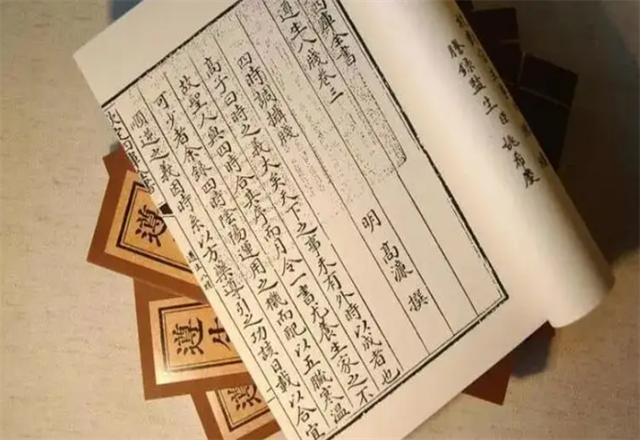 謄錄監生臣姚希慶
四庫全書
遵生八牋卷三
明 高濂 撰
四時調攝牋
高子曰時之義大矣天下之事未有外時以成者也
故聖人與四時合其序而月令一書尤養生家之不
可少者余錄四時陰陽運用之機而配以五臟寒溫
順逆之義因時系以方藥導引之功該日載以合宜
遵
遵生